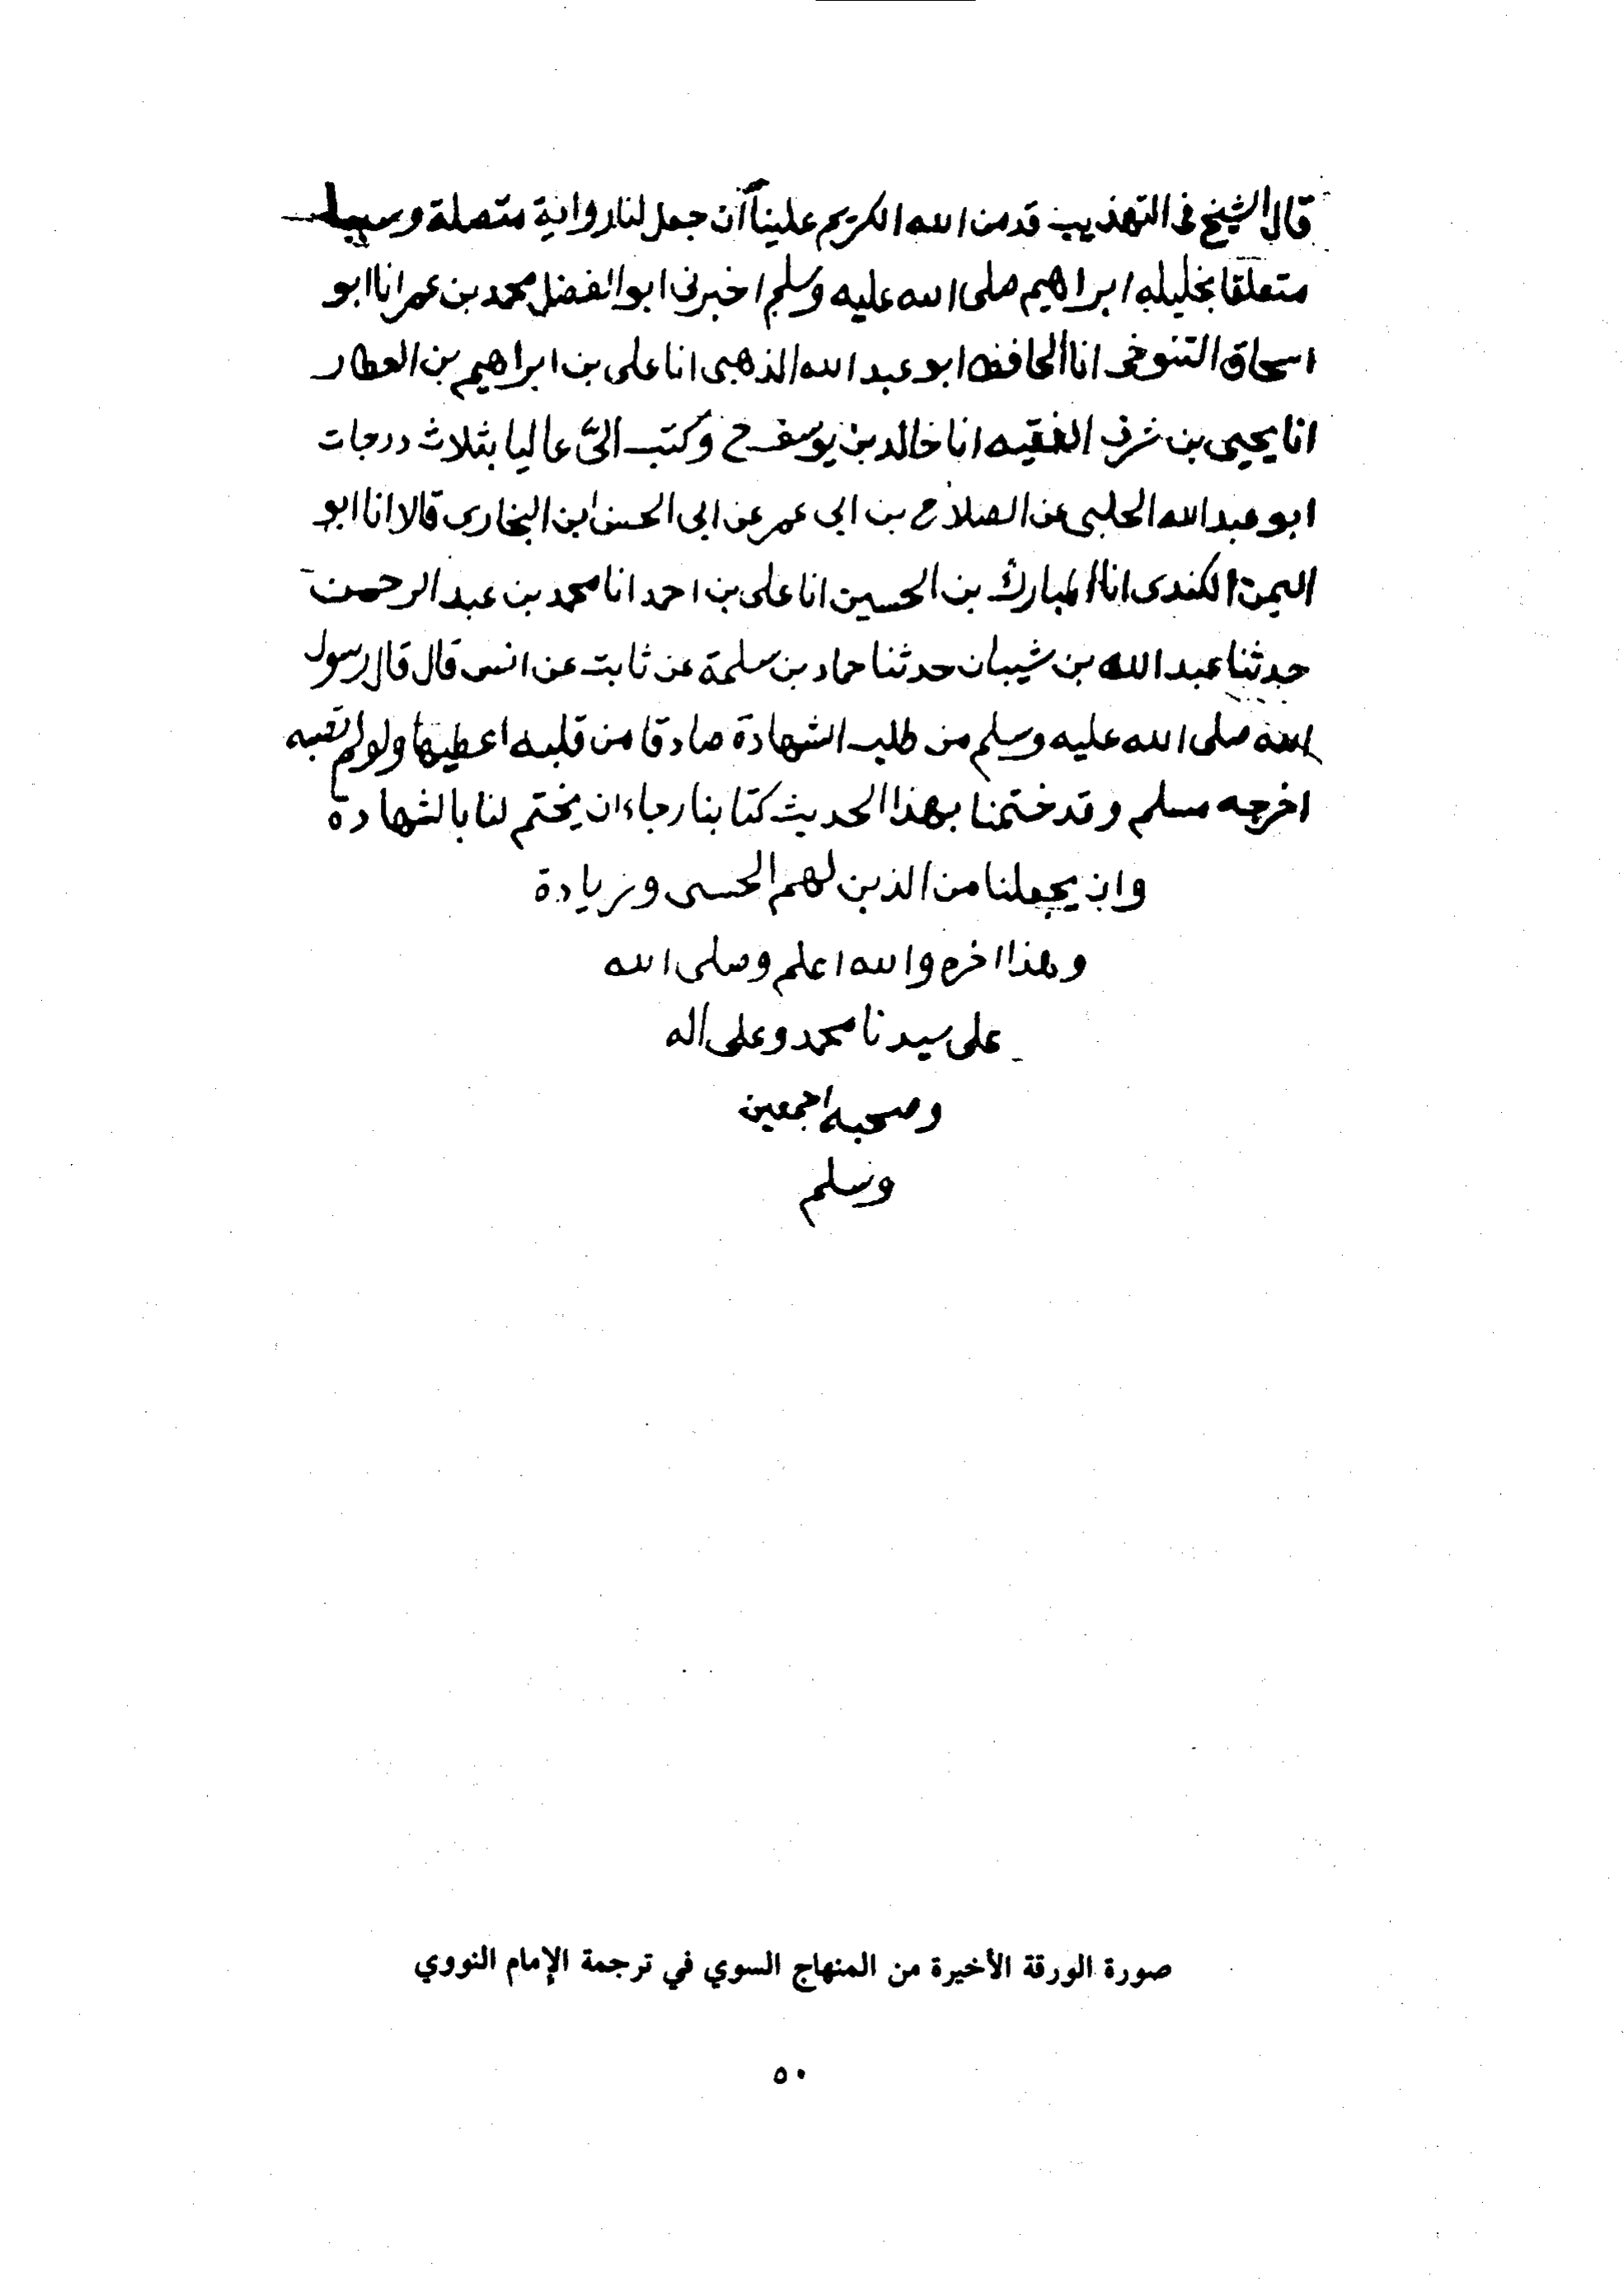 قال الشيخ فى التهذيب قد من الله الكريم علينا أن جعل لنا رواية متصلة وسببا
متعلقا بخليله ابراهيم صلى الله عليه وسلم اخبرنى ابو الفضل محمد بن عمر انا ابو
اسحاق التنوخى انا الحافظ ابو عبد الله الذهبى انا على بن ابراهيم بن العطار
انا يحيى بن شرف الفقيه انا خالد بن يوسف ح وكتب الىَّ عاليا بثلاث درجات
ابو عبد الله الحلبى عن الصلاح بن ابي عمر عن ابى الحسن ابن البخارى قالا انا ابو
اليمن الكندى انا المبارك بن الحسين انا على بن احمد انا محمد بن عبد الرحمن
حدثنا عبد الله بن شيبان حدثنا حماد بن سلمة عن ثابت عن انس قال قال رسول
الله صلى الله عليه وسلم من طلب الشهادة صادقا من قلبه اعطيها ولو لم تصبه
اخرجه مسلم وقد ختمنا بهذا الحديث كتابنا رجاء ان يختم لنا بالشهادة
وان يجعلنا من الذين لهم الحسنى وزيادة
وهذا اخره والله اعلم وصلى الله
على سيدنا محمد وعلى اله
وصحبه اجمعين
وسلم
صورة الورقة الأخيرة من المنهاج السوي في ترجمة الإمام النووي
٥٠